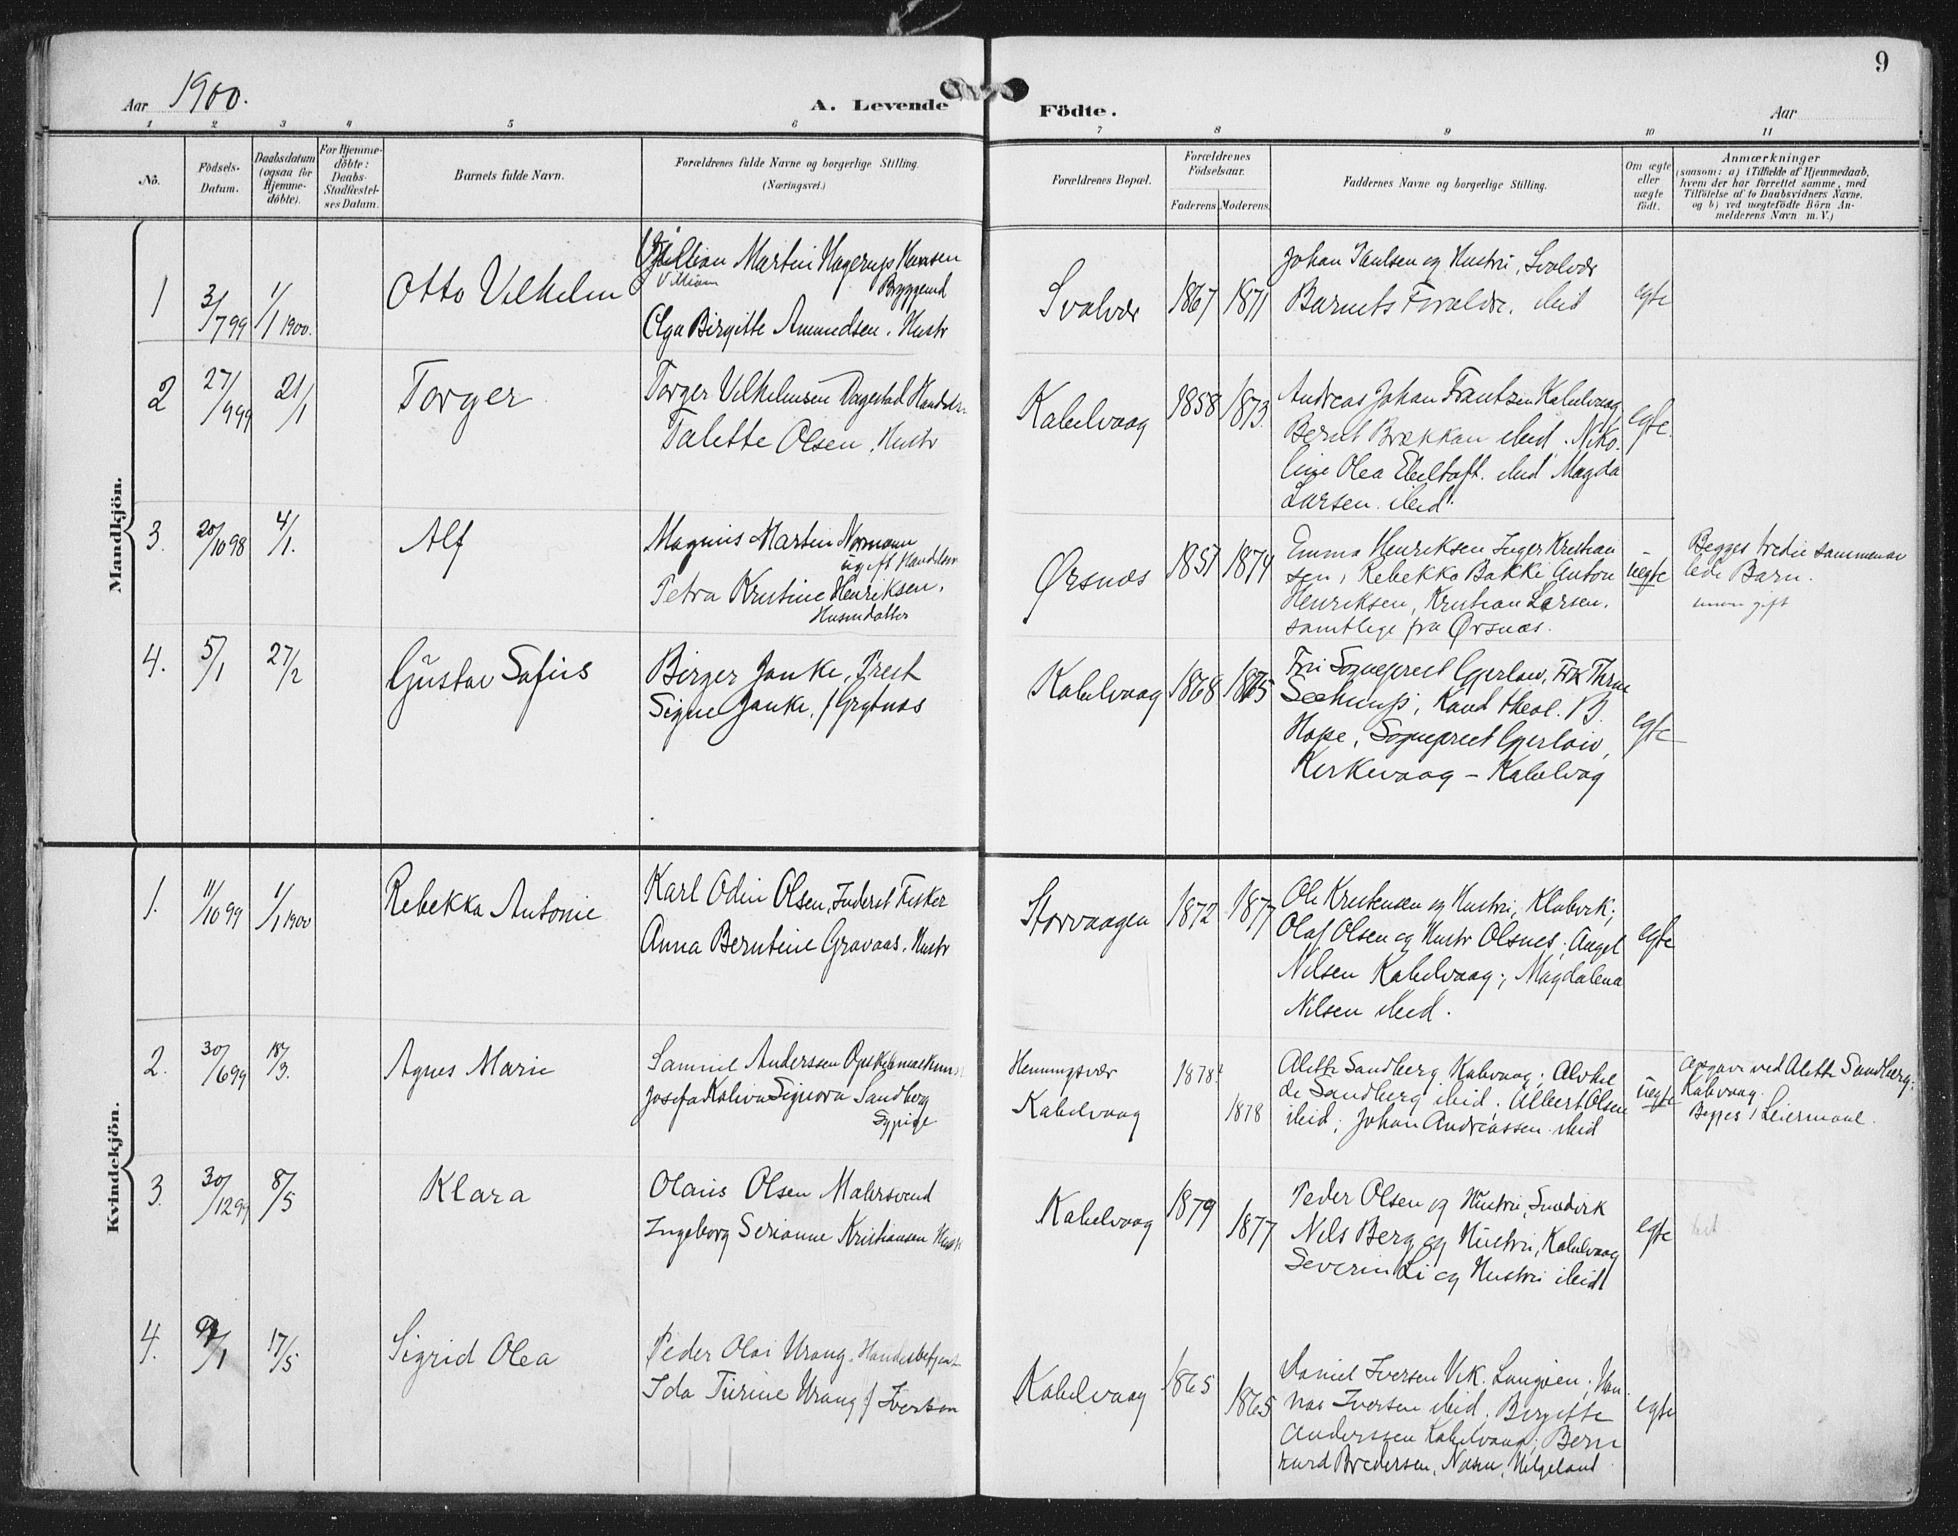 9
Aar 1900.
A. Levende Födte.
Aar
1 2 3 4 5 6 7 8 9 10 11
No.
Födsels-
Datum.
Daabsdatum
(ogsaa for
Hjemme-
döbte).
For Hjemme-
döbte:
Daabs-
Stadfæstel-
ses Datum.
Barnets fulde Navn.
Forældrenes fulde Navne og borgerlige Stilling.
(Næringsvei.)
Forældrenes Bopæl.
Forældrenes
Födselsaar.
Faderens. Moderens.
Faddernes Navne og borgerlige Stilling.
Om ægte
eller
uægte
födt.
Anmærkninger
(saasom: a) i Tilfælde af Hjemmedaab,
hvem der har forrettet samme, med
Tilföielse af to Daabsvidners Navne.
og b) ved uægtefödte Börn An-
melderens Navn m. V.)
Mandkjön.
1 3/7 99 1/1 1900. Otto Vilhelm
Martin Hagerup Hansen
Villiam Bryggemd
Olga Birgitte Amundsen. Hustr
Svolvær 1867 1871
Johan Paulsen og Hustru, Svolvær
Barnets Forældre. ibid
egte
2 27/9 99 21/1 Torger
Torger Vilhelmsen Dagestad
Talette Olsen. Hustr
Kabelvaag 1858 1873.
Andreas Johan Frantzen Kabelvaag
Bernt Brækkan ibid. Niko-
line Olea Ebeltoft. ibid Magda
Larsen. ibid.
egte.
3. 20/10 98 4/1. Alf
Magnus Martin Normann
ugift Handelsm
Petra Kristine Henriksen.
Husmdatter
Ørsnæs 1851 1874
Emma Henriksen Inger Kristian
sen, Rebekka Bakke Anton
Henriksen, Kristian Larsen.
samtlige fra Ørsnæs.
uegte
Begges tredie sammenav
lede Barn.
gift
4. 5/1 27/2 Gustav Sofus
Birger Janke, Prest
Signe Janke, f Grytnæs
Kabelvaag 1868 1875
Fru Sogneprest Gjerløw, Frk Thrine
Kand theol. B.
Hope, Sogneprest Gjerløw,
Kirkevaag – Kabelvag
egte
Kvindekjön.
1. 11/10 99 1/1 1900 Rebekka Antonie
Karl Odin Olsen, Inderst Fisker
Anna Berntine Gravaas. Hustr
Storvaagen 1872 1877
Ole Kristensen og Hustru, Klubvik;
Olaf Olsen og Hustr Olsnes; Angel
Nilsen Kabelvaag; Magdalena
Nilsen ibid.
egte
2. 30/6 99 18/3. Agnes Marie
Samuel Anderssen
Josefa Kaliva Signora Sandberg
Sypige
Henningsvær
Kabelvaag
1878 1878
Alette Sandberg Kabvaag; Alvhil
de Sandberg ibid; Albert Olsen
ibid; Johan Andreassen ibid
uegte
Opgave ved Alette Sandberg;
Kabvaag.
Begges 1 Leiermaal.
3. 30/12 99 8/5 Klara
Olaus Olsen Malersvend
Ingeborg Serianne Kristiansen
Kabelvaag 1879 1877
Peder Olsen og Hustru,
Nils Berg og Hustru, Kabelvaag
Severin Li og Hustru ibid
egte
4. 9/1 17/5 Sigrid Olea
Peder Olai Urang. Handelsbetjent
Ida Turine Urang f Iversen
Kabelvaag 1865 1865
Daniel Iversen Vik. Langøen;
nas Iversen ibid; Birgitte
Anderssen Kabelvaag; Bern
hard Bredersen, Næsne, Helgeland
egte